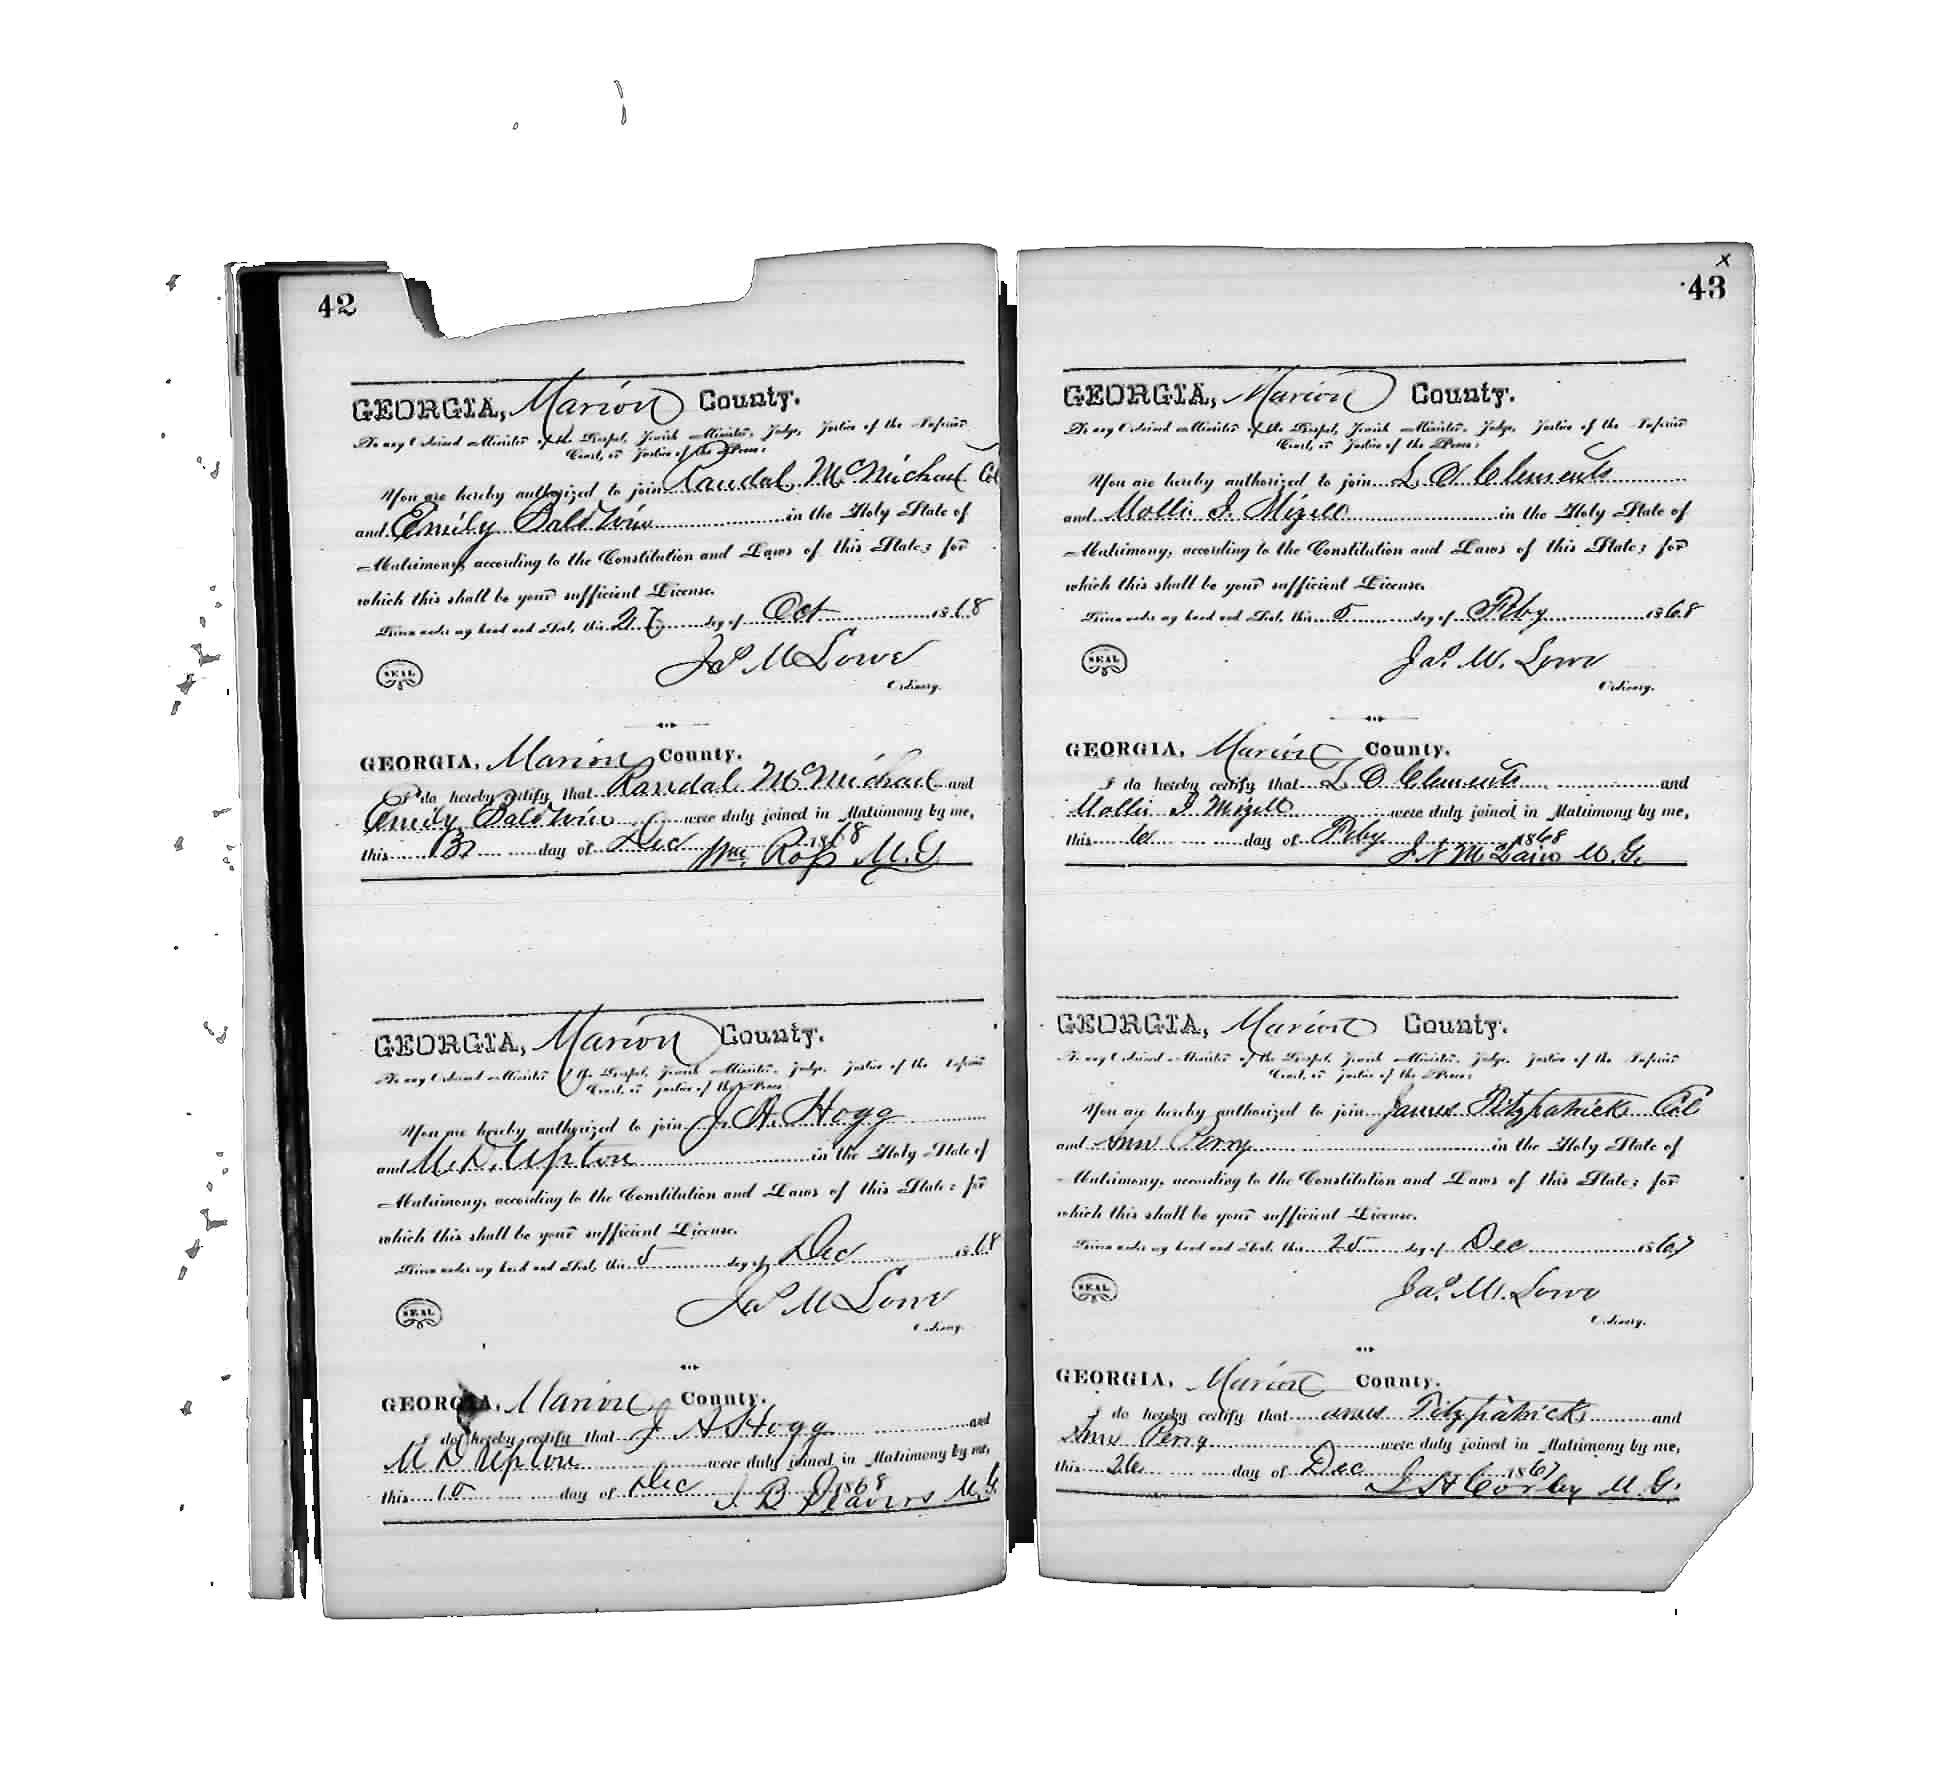 42
GEORGIA, Marion County.
To any Ordained Minister of the Gospel, Jewish Minister, Judge, Justice of the Inferior
Court, or Justice of the Peace:
You are hereby authorized to join Randal McMichael Col
and Emily Baldwin in the Holy State of
Matrimony, according to the Constitution and Laws of this State; for
which this shall be your sufficient License.
Given under my hand and Seal, this 27 day of Oct 1868
SEAL
Jas M Lowe
Ordinary.
GEORGIA, Marion County.
I do hereby certify that Randal McMichael and
Emily Baldwin were duly joined in Matrimony by me,
this day of Dec 1868
Wm Ross M.G
GEORGIA, Marion County.
To any Ordained Minister of the Gospel, Jewish Minister, Judge, Justice of the Inferior
Court, or Justice of the Peace
You are hereby authorized to join J. A. Hogg
and M. D. Upton in the Holy State of
Matrimony, according to the Constitution and Laws of this State; for
which this shall be your sufficient License.
Given under my hand and Seal, this 5 day of Dec 1868
SEAL
Jas M Lowe
Ordinary.
GEORGIA, Marion County.
I do hereby certify that J A Hogg and
M D Upton were duly joined in Matrimony by me,
this 10 day of Dec 1868
J. B. M.G.
x
43
GEORGIA, Marion County.
To any Ordained Minister of the Gospel, Jewish Minister, Judge, Justice of the Inferior
Court, or Justice of the Peace:
You are hereby authorized to join L O Clements
and Mollie J. Mizell in the Holy State of
Matrimony, according to the Constitution and Laws of this State; for
which this shall be your sufficient License.
Given under my hand and Seal, this 5 day of Feby 1868
SEAL
Jas. M. Lowe
Ordinary.
GEORGIA, Marion County.
I do hereby certify that L O Clements and
Mollie J Mizell were duly joined in Matrimony by me,
this 6 day of Feby 1868
M.G.
GEORGIA, Marion County.
To any Ordained Minister of the Gospel, Jewish Minister, Judge, Justice of the Inferior
Court, or Justice of the Peace:
You are hereby authorized to join James Fitzpatrick Col
and Ann Perry in the Holy State of
Matrimony, according to the Constitution and Laws of this State; for
which this shall be your sufficient License.
Given under my hand and Seal, this 25 day of Dec 1867
SEAL
Jas. M. Lowe
Ordinary.
GEORGIA, Marion County.
I do hereby certify that James Fitzpatrick and
Ann Perry were duly joined in Matrimony by me,
this 26 day of Dec 1867
Corley M.G.